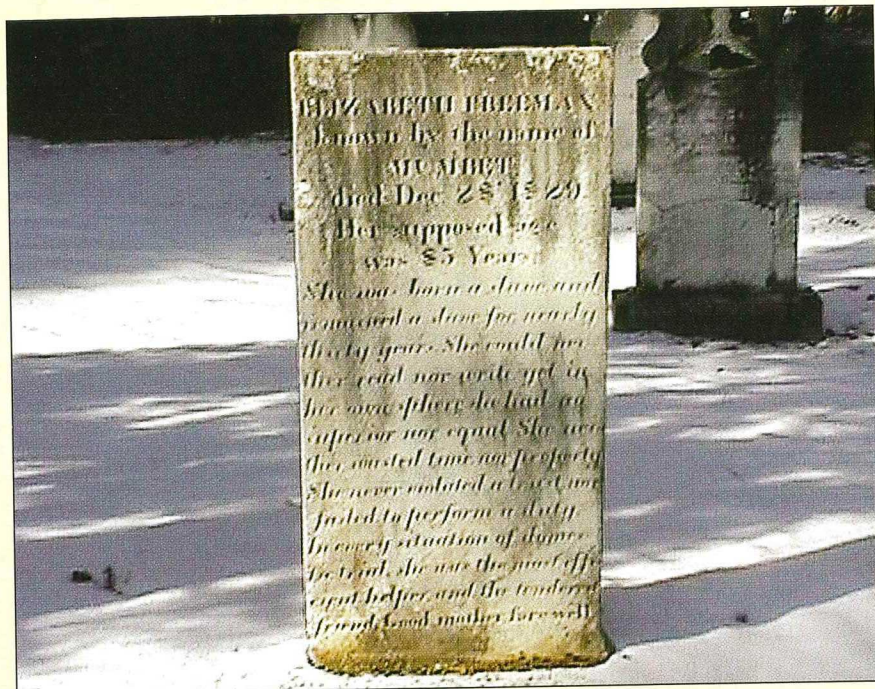 ELIZABETH FREEMAN
known by the name of
MUMBET
died Dec 28th 1829
Her supposed age
was 85 Years.
She was born a slave and
remained a slave for nearly
thirty years. She could nei
ther read nor write yet in
her own sphere she had no
superior nor equal She nei
ther wasted time nor property
She never violated a trust nor
failed to perform a duty
In every situation of domes
tic trial, she was the most effi
cient helper, and the tenderest
friend. Good mother farewell